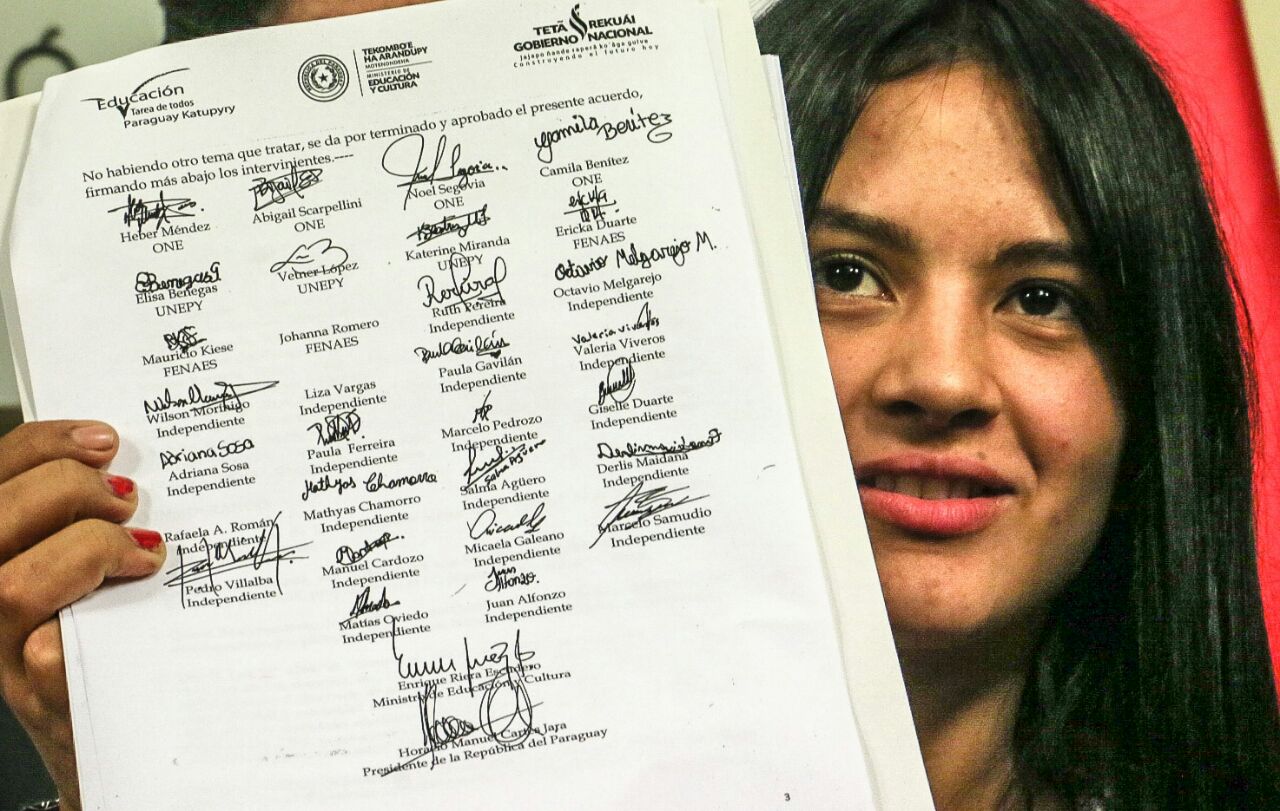 Educación
Tarea de todos
Paraguay Katupyry
TEKOMBO'E
HA ARANDUPY
MOTENONDEHA
MINISTERIO DE
EDUCACIÓN
Y CULTURA
TETÃ REKUÁI
GOBIERNO NACIONAL
Jajapo ñande raperã ko'ãga guive
Construyendo el futuro hoy
No habiendo otro tema que tratar, se da por terminado y aprobado el presente acuerdo,
firmando más abajo los intervinientes.----
Heber Méndez
ONE
Abigail Scarpellini
ONE
Noel Segovia
ONE
Camila Benítez
Camila Benítez
ONE
Benegas
Elisa Benegas
UNEPY
Velner López
UNEPY
Katerine Miranda
UNEPY
Ericka Duarte
FENAES
Mauricio Kiese
FENAES
Johanna Romero
FENAES
Ruth Pereira
Independiente
Octavio Melgarejo M.
Octavio Melgarejo
Independiente
Wilson Morinigo
Independiente
Liza Vargas
Independiente
Paula Gavilán
Paula Gavilán
Independiente
Valeria Viveros
Valeria Viveros
Independiente
Adriana Sosa
Adriana Sosa
Independiente
Paula Ferreira
Independiente
Marcelo Pedrozo
Independiente
Giselle Duarte
Independiente
Rafaela A. Román
Independiente
Mathyas Chamorro
Mathyas Chamorro
Independiente
Salma Agüero
Salma Agüero
Independiente
Derlis Maidana
Independiente
Pedro Villalba
Independiente
Manuel Cardozo
Independiente
Micaela Galeano
Independiente
Marcelo Samudio
Independiente
Matías Oviedo
Independiente
Juan Alfonzo
Juan Alfonzo
Independiente
Enrique Riera Escudero
Ministro de Educación y Cultura
Horacio Manuel Cartes Jara
Presidente de la República del Paraguay
3